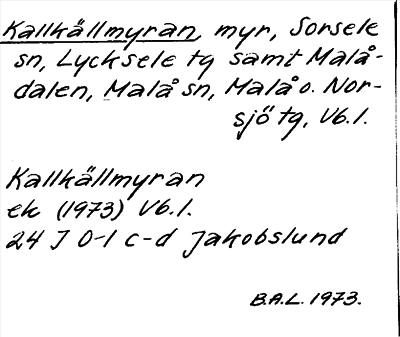 Kallkällmyran, myr, Sorsele
sn, Lycksele tg samt Malå-
dalen, Malå sn, Malå o. Nor-
sjö tg, Vb.l.
Kallkällmyran
ek (1973) Vb.l.
24 J 0-1 c-d Jakobslund
B.A.L. 1973.